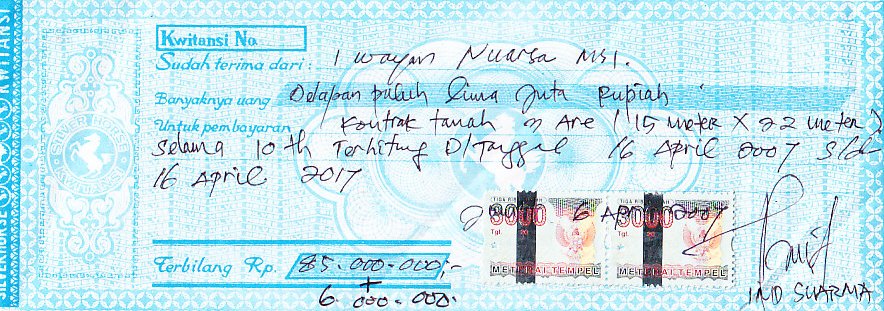 Kwitansi No.
Sudah terima dari : I Wayan Nuarsa MSI.
Banyaknya uang Delapan puluh lima Juta Rupiah
Untuk pembayaran Kontrak tanah Are (15 meter X 22 meter)
Selama 10 th Terhitung D/Tanggal 16 April 2007 S/d
16 April 2017
6 April 2007
TIGA RIBU
3000
Tgl. 20
METERAI TEMPEL
TIGA RIBU
3000
Tgl. 20
METERAI TEMPEL
Terbilang Rp. 85.000.000,-
+
6.000.000.
IND SUARMA
SILVERHORSE KWITANSI
SILVER HORSE